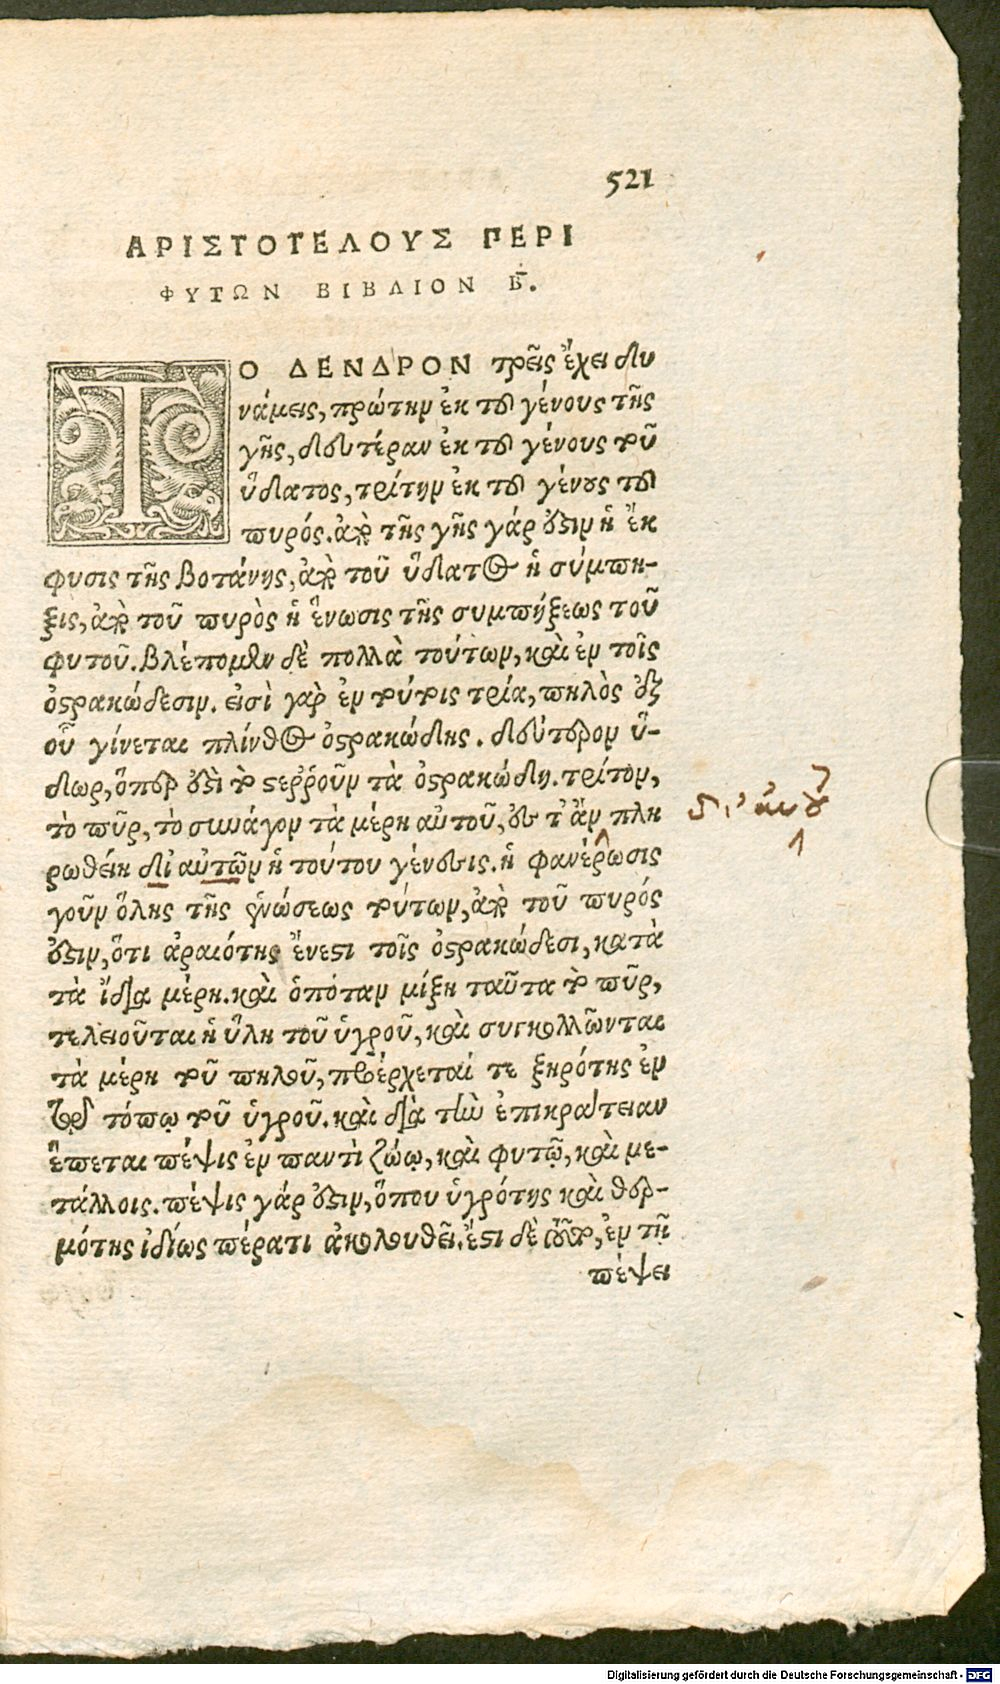 521
ΑΡΙΣΤΟΤΕΛΟΥΣ ΠΕΡΙ
ΦΥΤΩΝ ΒΙΒΛΙΟΝ Β̄.
ΤΟ ΔΕΝΔΡΟΝ τρεῖς ἔχει δυ
νάμεις, πρώτην ἐκ τοῦ γένους τῆς
γῆς, δευτέραν ἐκ τοῦ γένους τοῦ
ὕδατος, τρίτην ἐκ τοῦ γένους τοῦ
πυρός. ἀπὸ τῆς γῆς γάρ ἐστιν ἡ ἔκ
φυσις τῆς βοτάνης, ἀπὸ τοῦ ὕδατος ἡ σύμπη-
ξις, ἀπὸ τοῦ πυρὸς ἡ ἕνωσις τῆς συμπήξεως τοῦ
φυτοῦ. βλέπομεν δὲ πολλὰ τούτων, καὶ ἐν τοῖς
ὀστρακώδεσιν. εἰσὶ γὰρ ἐν τούτοις τρία, πηλὸς ἐξ
οὗ γίνεται πλίνθος ὀστρακώδης. δεύτερον ὕ-
δωρ, ὅπερ ἐστὶ τὸ στερῥοῦν τὰ ὀστρακώδη. τρίτον,
τὸ πῦρ, τὸ συνάγον τὰ μέρη αὐτοῦ, ἕως τ' ἂν πλη
ρωθείη δι αὐτῶν ἡ τούτου γένεσις. ἡ φανέρωσις
γοῦν ὅλης τῆς ἑνώσεως τούτων, ἀπὸ τοῦ πυρός
ἐστιν, ὅτι ἀραιότης ἔνεστι τοῖς ὀστρακώδεσι, κατὰ
τὰ ἴδια μέρη. καὶ ὁπόταν μίξῃ ταῦτα τὸ πῦρ,
τελειοῦται ἡ ὕλη τοῦ ὑγροῦ, καὶ συγκολλῶνται
τὰ μέρη τοῦ πηλοῦ, περιέρχεταί τε ξηρότης ἐν
τῷ τόπῳ τοῦ ὑγροῦ. καὶ διὰ τὴν ἐπικράτειαν
ἕπεται πέψις ἐν παντὶ ζώῳ, καὶ φυτῷ, καὶ με-
τάλλοις. πέψις γάρ ἐστιν, ὅπου ὑγρότης καὶ θερ-
μότης ἰδίως πέρατι ἀκολουθεῖ. ἔστι δὲ τοῦτο, ἐν τῇ
πέψει
Digitalisierung gefördert durch die Deutsche Forschungsgemeinschaft - DFG